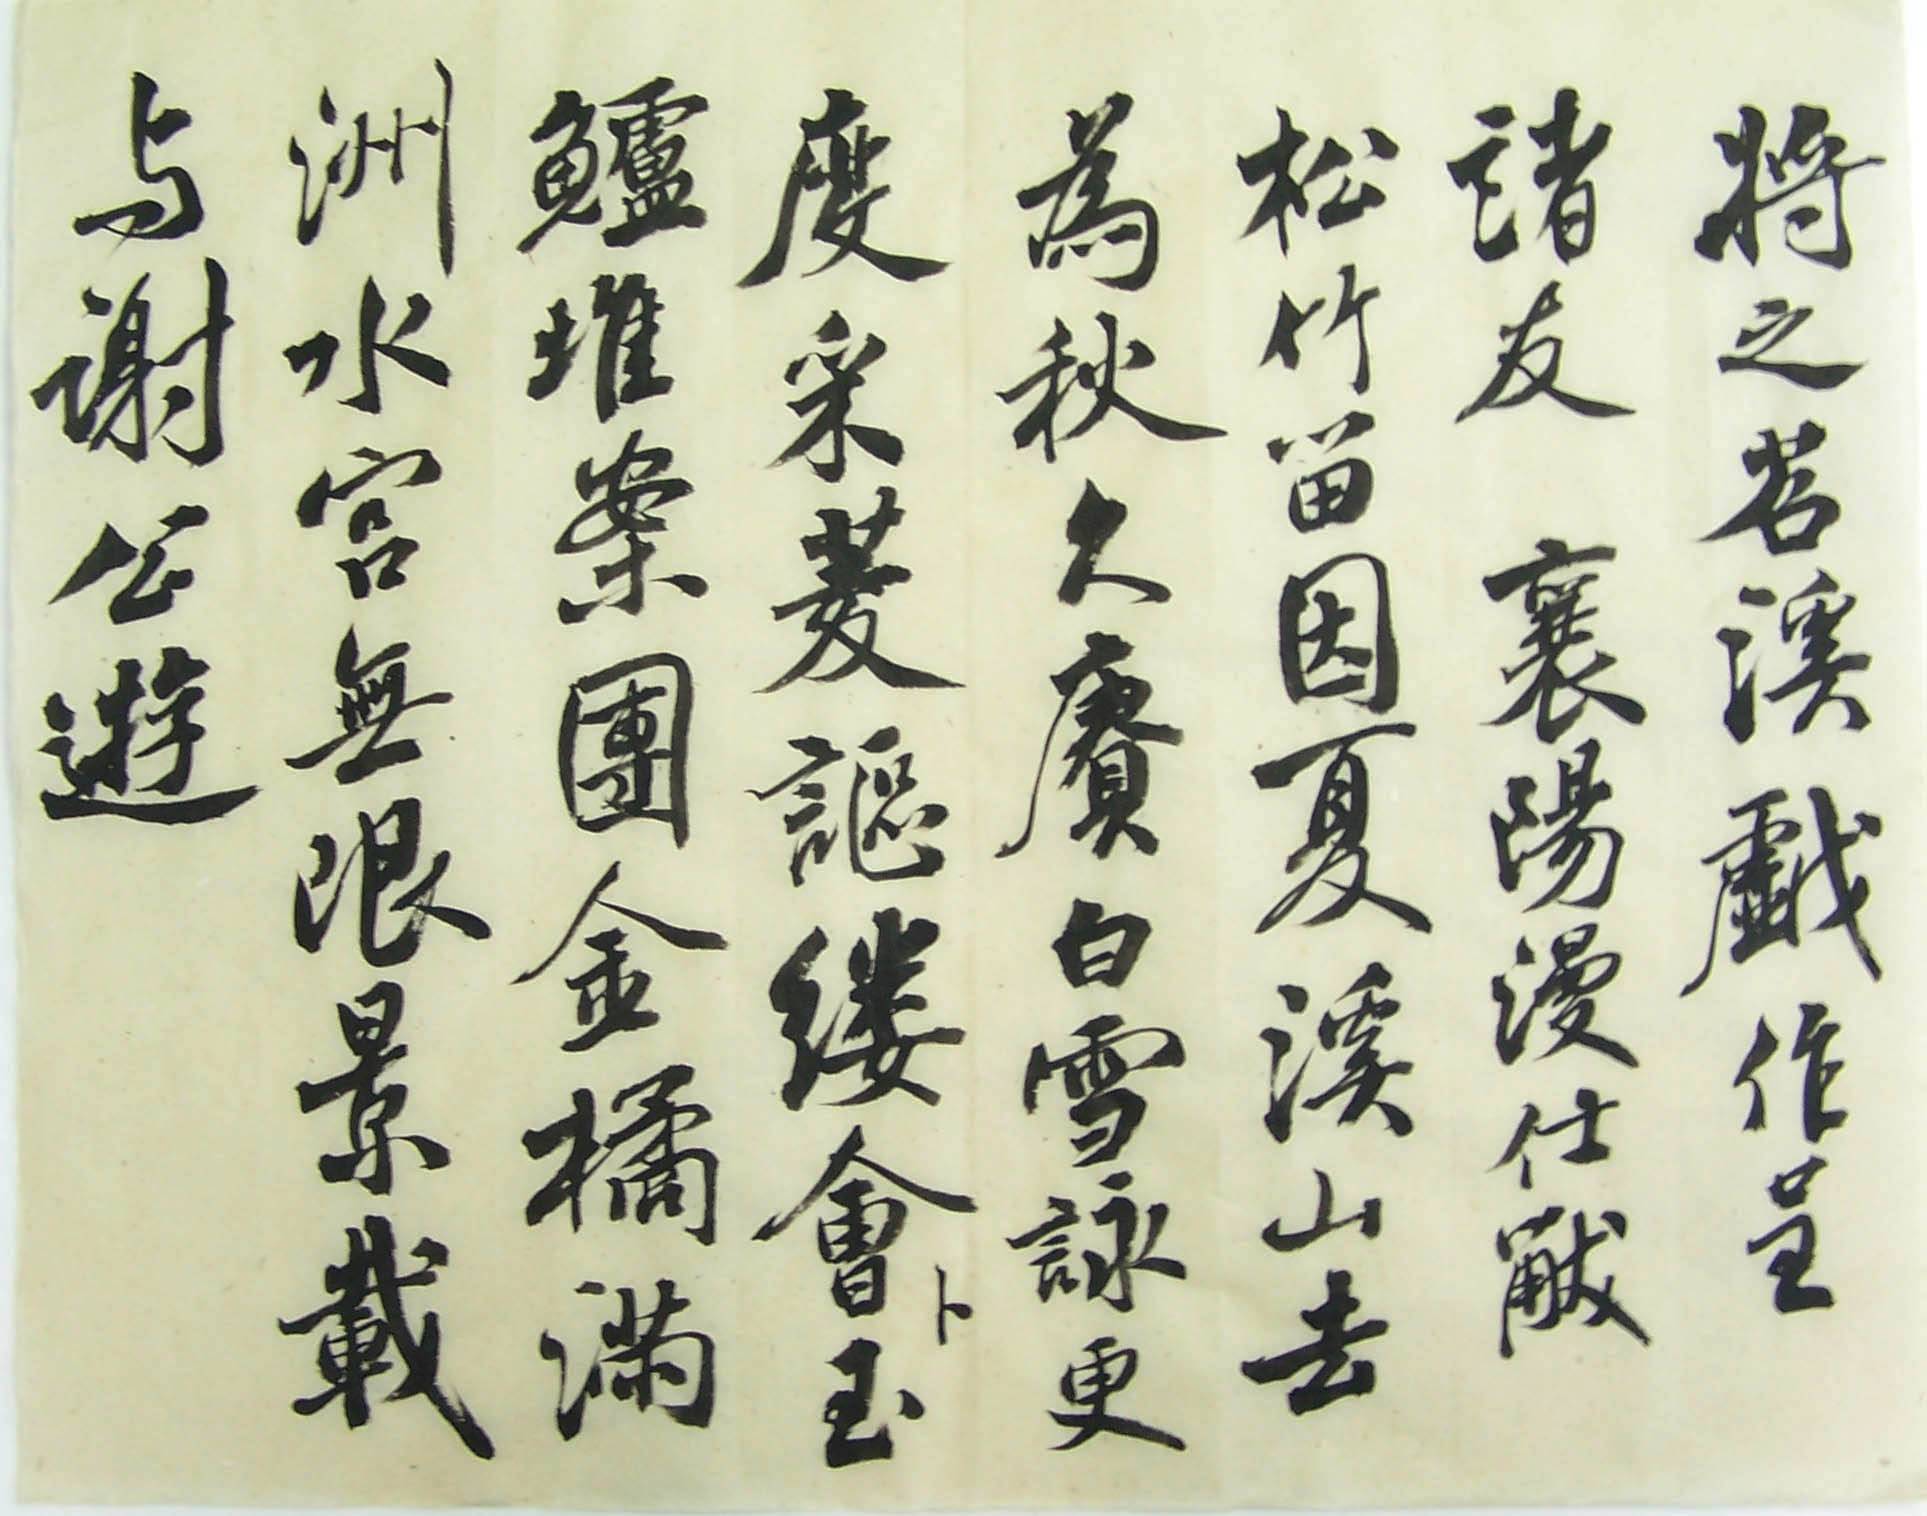 將之苕溪戯作呈
諸友 襄陽漫仕黻
松竹留因夏溪山去
為秋久賡白雪詠更
度采菱謳縷會玉卜
鱸堆案團金橘滿
洲水宮無限景載
与謝公遊